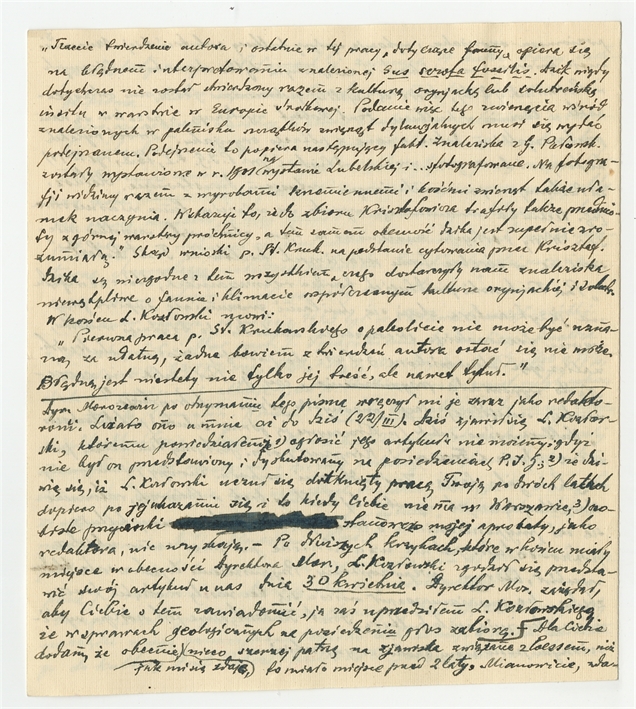 „Trzecie twierdzenie autora i ostatnie w tej pracy, dotyczące fauny, opiera się
na błędnem interpretowaniu znalezionej Sus scrofa fossilis. Dzik nigdy
dotychczas nie został stwierdzony razem z kulturą oryniacką lub solutrejską
in situ w warstwie w Europie środkowej. Podanie więc tego zwierzęcia wśród
znalezionych w palenisku szczątków zwierząt dyluwjalnych musi się wydać
podejrzanem. Podejrzenie to popiera następujący fakt. Znaleziska z G. Puławsk.
zostały wystawione w r. 1901 na wystawie Lubelskiej i sfotografowane. Na fotogra-
fji widzimy razem z wyrobami krzemiennemi i kośćmi zwierząt także uła-
mek naczynia. Wskazuje to, że do zbioru Krisztafowicza trafiły także przedmio-
ty z górnej warstwy próchnicy, a tem samem obecność dzika jest zupełnie zro-
zumiałą." Skąd wnioski p. St. Kruk. na podstawie cytowania przez Krisztaf.
dzika są niezgodne z tem wszystkiem, czego dostarczyły nam znaleziska
niewątpliwe o faunie i klimacie współczesnym kulturze oryniackiej i solutr.
W końcu L. Kozłowski mówi:
„Pierwsza praca p. St. Krukowskiego o paleolicie nie może być uzna-
na za udatną, żadne bowiem z twierdzeń autora ostać się nie może.
Błędną jest niestety nie tylko jej treść, ale nawet tytuł."
Dyr. Morozewicz po otrzymaniu tego pisma wręczył mi je zaraz jako redakto-
rowi. Leżało ono u mnie aż do dziś (22/III). Dziś zjawił się L. Kozłow-
ski, któremu powiedziałem, 1) ogłosić jego artykułu nie możemy, gdyż
nie był on przedstawiony i dyskutowany na posiedzeniach P.I.G., 2) że dzi-
wię się, iż L. Kozłowski uczuł się dotknięty pracą Twoją po dwóch latach
dopiero po jej ukazaniu się i to kiedy Ciebie nie ma w Warszawie, 3) oso-
biste przycinki stanowczo mojej aprobaty, jako
redaktora, nie uzyskają. – Po dłuższych krzykach, które w końcu miały
miejsce w obecności Dyrektora Mor., L. Kozłowski zgodził się przedsta-
wić swój artykuł u nas dnia 30 kwietnia. Dyrektor Mor. zażądał,
aby Ciebie o tem zawiadomić, ja zaś uprzedziłem L. Kozłowskiego,
że w sprawach geologicznych na posiedzeniu głos zabiorę. Dla Ciebie
dodam, że obecnie nieco szerzej patrzę na zjawiska związane z loessem, niż
(jak mi się zdaje) to miało miejsce przed 2 laty. Mianowicie, zda-